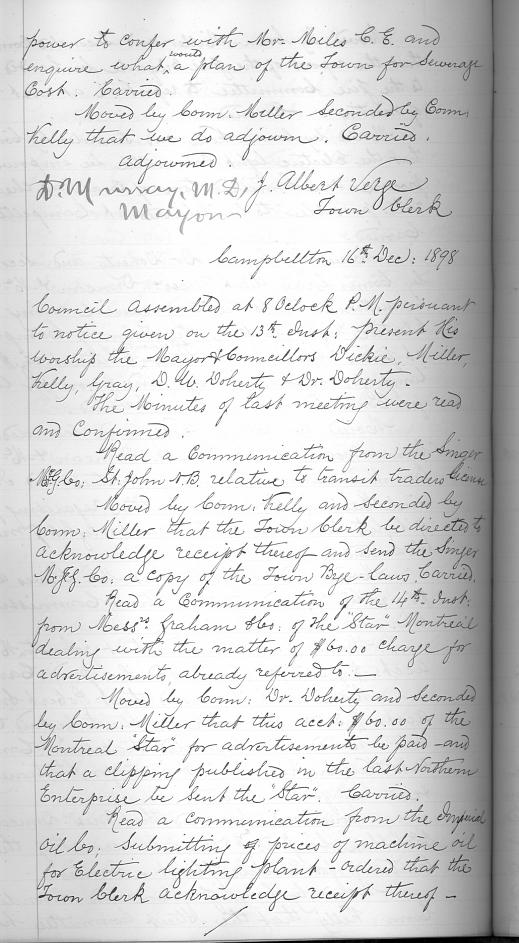 power to confer with Mr. Miles C. E. and
enquire what would a plan of the Town for Sewerage
Cost. Carried
Moved by Coun. Miller Seconded by Coun.
Kelly that we do adjourn. Carried.
adjourned.
D. Murray, M.D, J. Albert Verge
Mayor Town Clerk
Campbellton 16th Dec: 1898
Council assembled at 8 Oclock P.M. persuant
to notice given on the 13th Inst: present His
worship the Mayor & Councillors Dickie, Miller,
Kelly, Gray, D. W. Doherty & Dr. Doherty.
The Minutes of last meeting were read
and Confirmed.
Read a Communication from the Singer
Mfg. Co: St. John N.B. relative to transit traders license
Moved by Coun: Kelly and seconded by
Coun: Miller that the Town Clerk be directed to
acknowledge receipt thereof and send the Singer
Mfg. Co: a copy of the Town Bye-laws. Carried.
Read a Communication of the 14th Inst:
from Messrs. Graham & Co: of the "Star" Montreal
dealing with the matter of $60.00 charge for
advertisements, already referred to. —
Moved by Coun: Dr. Doherty and Seconded
by Coun: Miller that this acct: $60.00 of the
Montreal "Star" for advertisements be paid - and
that a clipping published in the last Northern
Enterprise be sent the "Star" Carried.
Read a communication from the Imperial
Oil Co: Submitting of prices of machine oil
for Electric lighting plant - ordered that the
Town Clerk acknowledge receipt thereof —